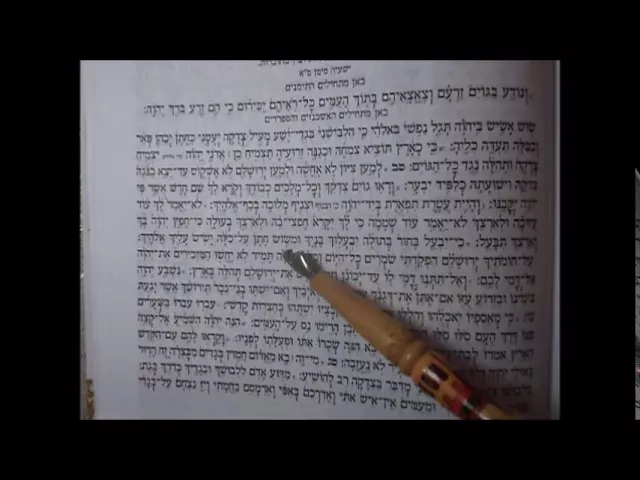 ישעיה סימן ס״א
כאן מתחילים התימנים
וְנוֹדַע בַּגּוֹיִם זַרְעָם וְצֶאֱצָאֵיהֶם בְּתוֹךְ הָעַמִּים כׇּל־רֹאֵיהֶם יַכִּירוּם כִּי הֵם זֶרַע בֵּרַךְ יְהֹוָה׃
כאן מתחילים האשכנזים והספרדים
שׂוֹשׂ אָשִׂישׂ בַּיהֹוָה תָּגֵל נַפְשִׁי בֵּאלֹהַי כִּי הִלְבִּישַׁנִי בִּגְדֵי־יֶשַׁע מְעִיל צְדָקָה יְעָטָנִי כֶּחָתָן יְכַהֵן פְּאֵר
וְכַכַּלָּה תַּעְדֶּה כֵלֶיהָ׃ כִּי כָאָרֶץ תּוֹצִיא צִמְחָהּ וּכְגַנָּה זֵרוּעֶיהָ תַצְמִיחַ כֵּן אֲדֹנָי יְהֹוִה יַצְמִיחַ
צְדָקָה וּתְהִלָּה נֶגֶד כׇּל־הַגּוֹיִם׃ סב לְמַעַן צִיּוֹן לֹא אֶחֱשֶׁה וּלְמַעַן יְרוּשָׁלַ͏ִם לֹא אֶשְׁקוֹט עַד־יֵצֵא כַנֹּגַהּ
צִדְקָהּ וִישׁוּעָתָהּ כְּלַפִּיד יִבְעָר׃ וְרָאוּ גוֹיִם צִדְקֵךְ וְכׇל־מְלָכִים כְּבוֹדֵךְ וְקֹרָא לָךְ שֵׁם חָדָשׁ אֲשֶׁר פִּי
יְהֹוָה יִקֳּבֶנּוּ׃ וְהָיִית עֲטֶרֶת תִּפְאֶרֶת בְּיַד־יְהֹוָה וּצְנִיף מְלוּכָה בְּכַף־אֱלֹהָיִךְ׃ לֹא־יֵאָמֵר לָךְ עוֹד
עֲזוּבָה וּלְאַרְצֵךְ לֹא־יֵאָמֵר עוֹד שְׁמָמָה כִּי לָךְ יִקָּרֵא חֶפְצִי־בָהּ וּלְאַרְצֵךְ בְּעוּלָה כִּי־חָפֵץ יְהֹוָה בָּךְ
וְאַרְצֵךְ תִּבָּעֵל׃ כִּי־יִבְעַל בָּחוּר בְּתוּלָה יִבְעָלוּךְ בָּנָיִךְ וּמְשׂוֹשׂ חָתָן עַל־כַּלָּה יָשִׂישׂ עָלַיִךְ אֱלֹהָיִךְ׃
עַל־חוֹמֹתַיִךְ יְרוּשָׁלַ͏ִם הִפְקַדְתִּי שֹׁמְרִים כׇּל־הַיּוֹם תָּמִיד לֹא יֶחֱשׁוּ הַמַּזְכִּירִים אֶת־יְהֹוָה
אַל־דֳּמִי לָכֶם׃ וְאַל־תִּתְּנוּ דֳמִי לוֹ עַד־יְכוֹנֵן אֶת־יְרוּשָׁלַ͏ִם תְּהִלָּה בָּאָרֶץ׃ נִשְׁבַּע יְהֹוָה
בִּימִינוֹ וּבִזְרוֹעַ עֻזּוֹ אִם־אֶתֵּן אֶת־דְּגָנֵךְ אֹיְבַיִךְ וְאִם־יִשְׁתּוּ בְנֵי־נֵכָר תִּירוֹשֵׁךְ אֲשֶׁר יָגַעַתְּ
בּוֹ׃ כִּי מְאַסְפָיו יֹאכְלֻהוּ וְהִלְלוּ יִשְׁתֻּהוּ בְּחַצְרוֹת קׇדְשִׁי׃ עִבְרוּ עִבְרוּ בַּשְּׁעָרִים
פַּנּוּ דֶּרֶךְ הָעָם סֹלּוּ סֹלּוּ הָרִימוּ נֵס עַל־הָעַמִּים׃ הִנֵּה יְהֹוָה הִשְׁמִיעַ אֶל־קְצֵה
הָאָרֶץ אִמְרוּ לְבַת הִנֵּה שְׂכָרוֹ אִתּוֹ וּפְעֻלָּתוֹ לְפָנָיו׃ וְקָרְאוּ לָהֶם עַם־הַקֹּדֶשׁ
גְּאוּלֵי יְהֹוָה לֹא נֶעֱזָבָה׃ סג מִי־זֶה בָּא מֵאֱדוֹם חֲמוּץ בְּגָדִים מִבׇּצְרָה זֶה הָדוּר
בִּלְבוּשׁוֹ מְדַבֵּר בִּצְדָקָה רַב לְהוֹשִׁיעַ׃ מַדּוּעַ אָדֹם לִלְבוּשֶׁךָ וּבְגָדֶיךָ כְּדֹרֵךְ בְּגַת׃
וּמֵעַמִּים אֵין־אִישׁ אִתִּי וְאֶדְרְכֵם בְּאַפִּי וְאֶרְמְסֵם בַּחֲמָתִי וְיֵז נִצְחָם עַל־בְּגָדַי